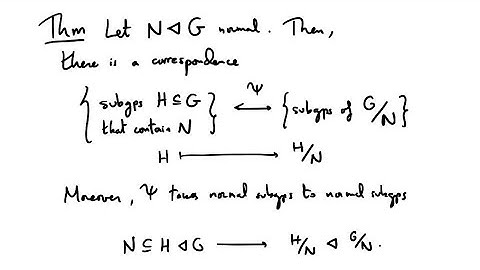 Thm Let N ◁ G normal. Then,
there is a correspondence
{ subgps H ⊆ G that contain N } ⟷ { subgps of G/N }
Ψ
H ⟼ H/N
Moreover, Ψ takes normal subgps to normal subgps
N ⊆ H ◁ G ⟶ H/N ◁ G/N.